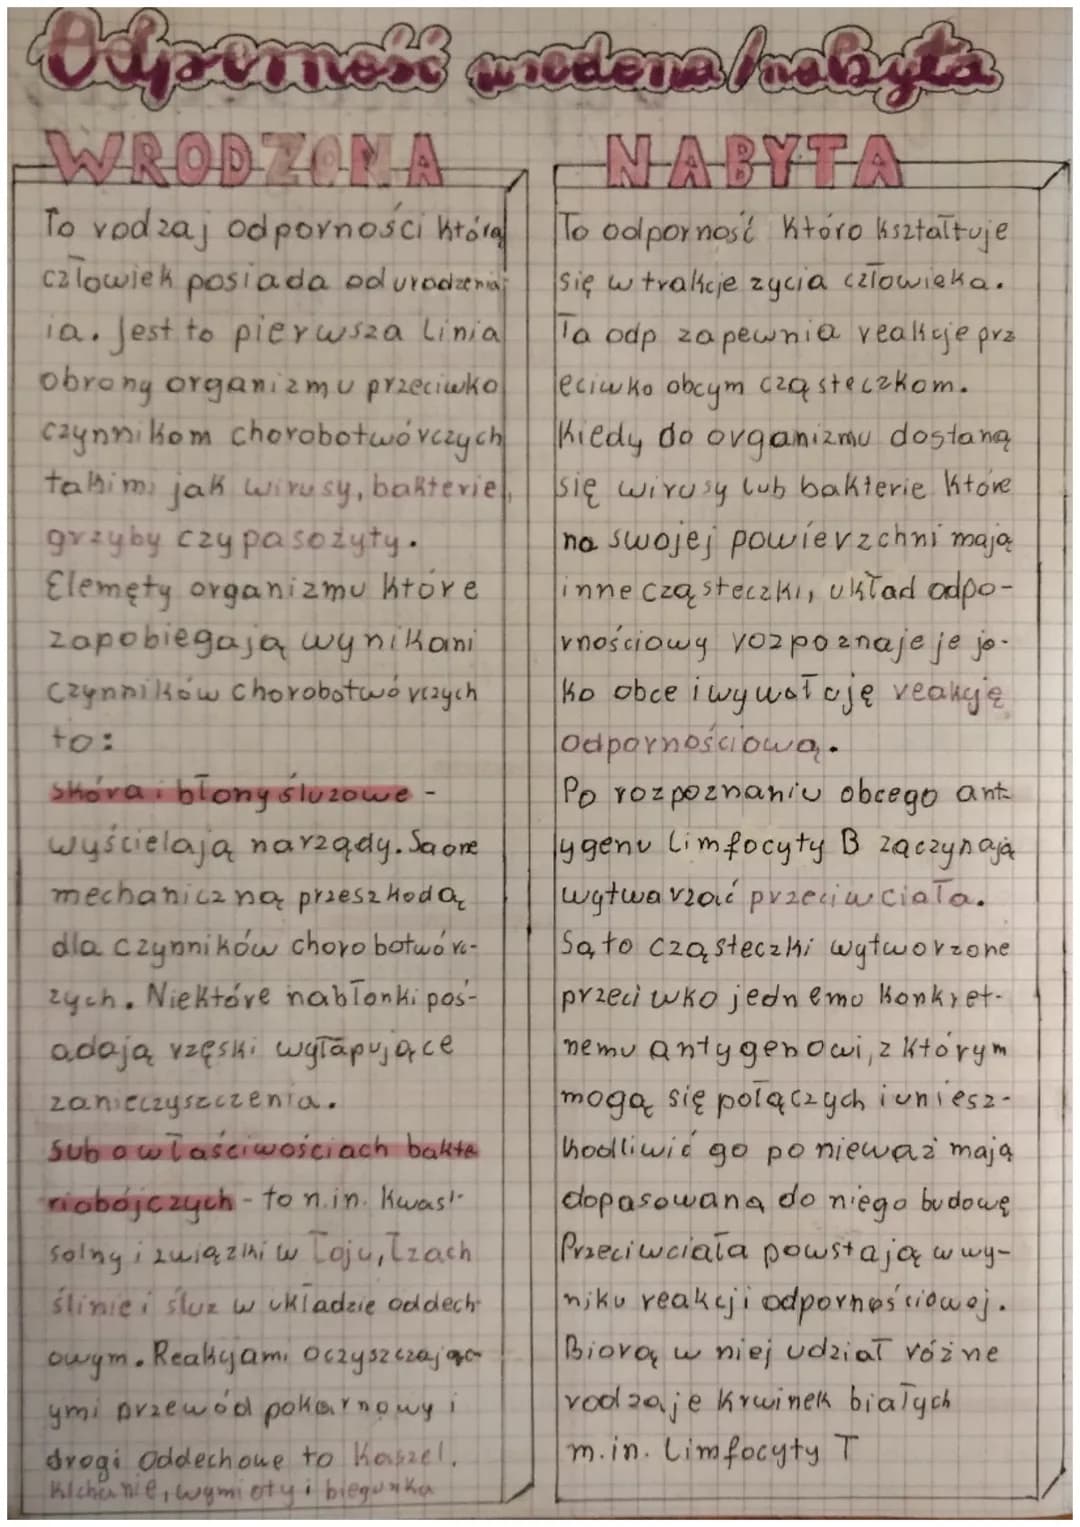 Odporność wrodzona/nabyta
WRODZONA
To rodzaj odporności którą
człowiek posiada od urodzenia
ia. Jest to pierwsza linia
obrony organizmu przeciwko
czynnikom chorobotwórczych
takimi jak wirusy, bakterie,
grzyby czy pasożyty.
Elemęty organizmu które
zapobiegają wynikani
czynników chorobotwórczych
to:
skóra i błony śluzowe -
wyścielają narządy. Są one
mechaniczną przeszkodą
dla czynników chorobotwórc-
zych. Niektóre nabłonki poś-
adają rzęski wyłapujące
zanieczyszczenia.
Sub o właściwościach bakte
riobójczych - to n.in. kwas
solny i związki w łoju, łzach
ślinie i śluz w układzie oddech-
owym. Reakcjami oczyszczając
ymi przewód pokarmowy i
drogi oddechowe to kaszel,
kichanie, wymioty i biegunka
NABYTA
To odporność któro kształtuje
się w trakcje życia człowieka.
Ta odp zapewnia reakcje prz
eciwko obcym cząsteczkom.
Kiedy do organizmu dostaną
się wirusy lub bakterie które
na swojej powierzchni mają
inne cząsteczki, układ odpo-
rnościowy rozpoznaje je ja-
ko obce i wywołuję reakcję
odpornościową.
Po rozpoznaniu obcego ant
ygenu limfocyty B zaczynają
wytwarzać przeciwciała.
Są to cząsteczki wytworzone
przeciwko jednemu konkret-
nemu antygenowi, z którym
mogą się połączych i uniesz-
kodliwić go ponieważ mają
dopasowaną do niego budowę
Przeciwciała powstają w wy-
niku reakcji odpornościowej.
Biorą w niej udział różne
rodzaje krwinek białych
m.in. limfocyty T